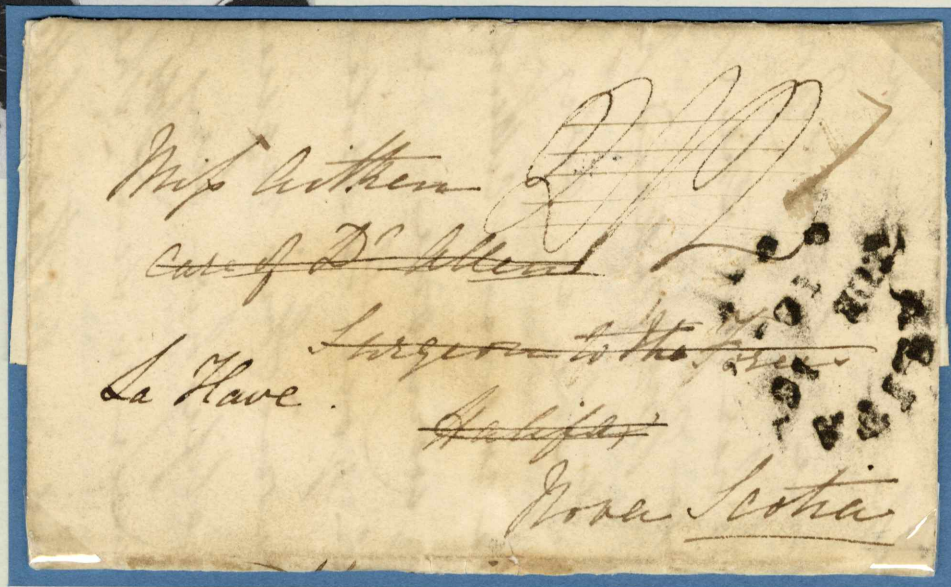 Miss Aitken
2/2
care of Dr Allen
Surgeon to the Forces
La Have.
Halifax
Nova Scotia